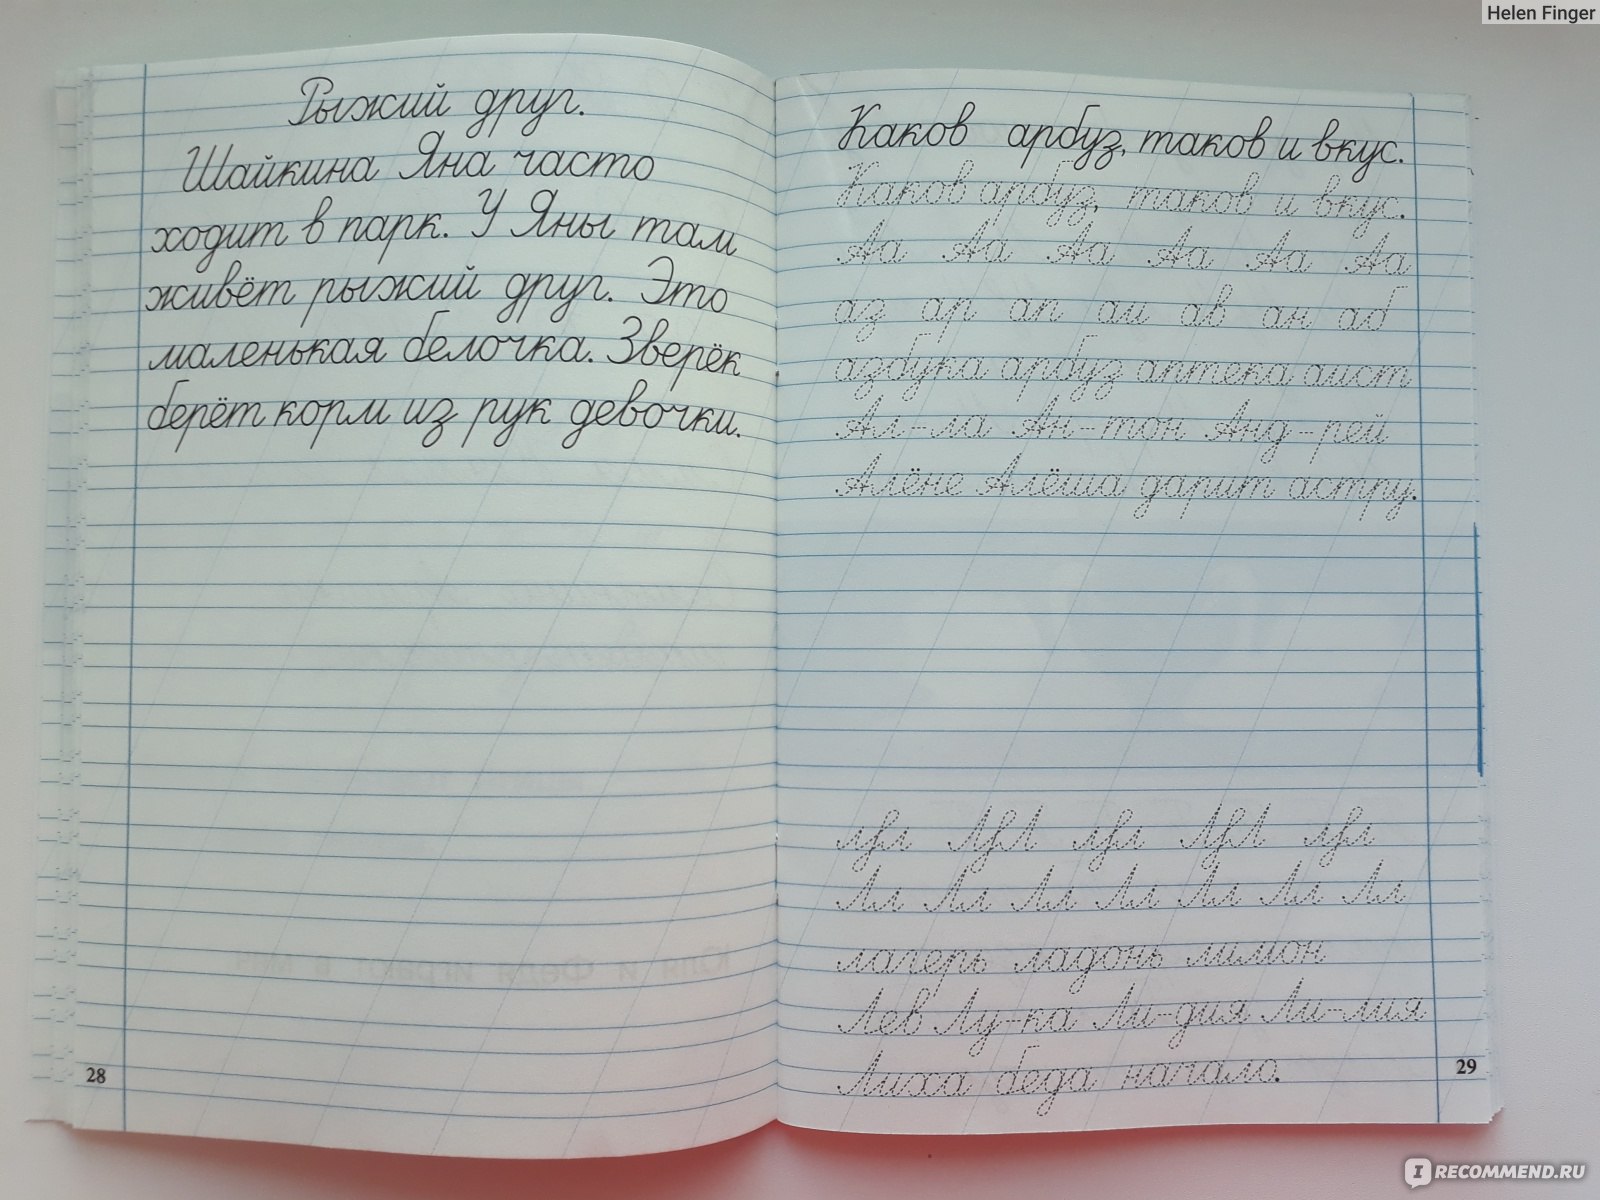 Helen Finger
Рыжий друг.
Шайкина Яна часто
ходит в парк. У Яны там
живёт рыжий друг. Это
маленькая белочка. Зверёк
берёт корм из рук девочки.
28
Каков арбуз, таков и вкус.
Каков арбуз, таков и вкус.
Аа Аа Аа Аа Аа Аа
аз ар ап аи ав ан аб
азбука арбуз аптека аист
Ал-ла Ан-тон Анд-рей
Алёне Алёша дарит астру.
Лл Лл Лл Лл Лл Лл Лл
лагерь ладонь лимон
Лев Лу-ка Ли-дия Ли-лия
Лиха беда начало.
29
IRECOMMEND.RU